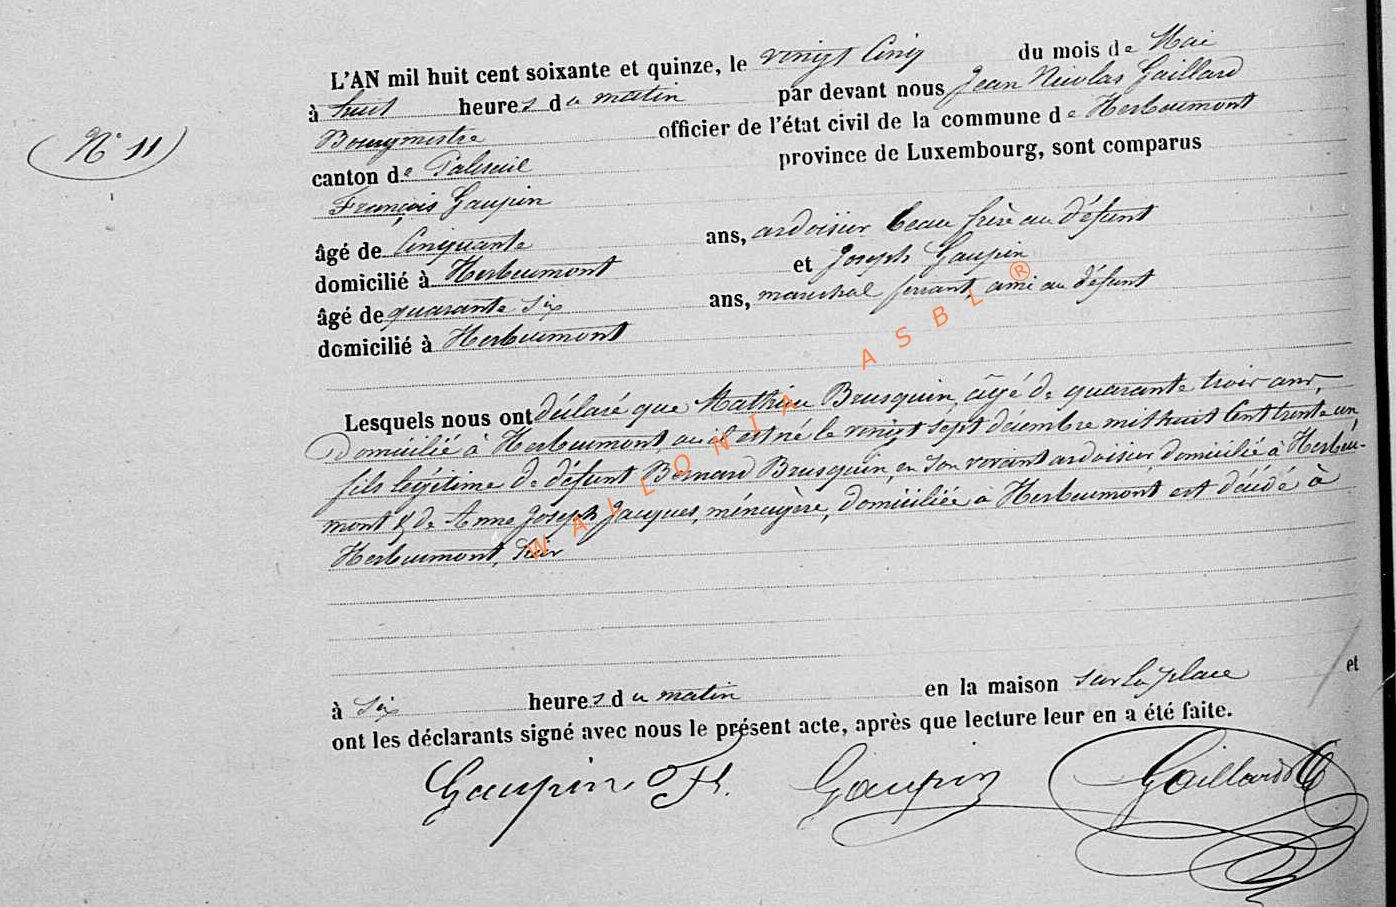 L'AN mil huit cent soixante et quinze, le vingt Cinq du mois de Mai
à huit heures du matin par devant nous Jean Nicolas Gaillard
Bourgmestre officier de l'état civil de la commune de Herbeumont
(N° 11)
canton de Paliseul province de Luxembourg, sont comparus
François Gaupin
âgé de Cinquante ans, ardoisier beau frère au défunt
domicilié à Herbeumont et Joseph Gaupin
âgé de quarante six ans, marechal ferrant, ami au défunt
domicilié à Herbeumont
Lesquels nous ont déclaré que Mathieu Brusquin, âgé de quarante trois ans,
Domicilié à Herbeumont, où il est né le vingt sept décembre mil huit Cent trente un
fils légitime de défunt Bernard Brusquin, en son vivant ardoisier, domicilié à Herbeu-
mont & de Anne Joseph Jacques, ménagère, domiciliée à Herbeumont est décédé à
Herbeumont, hier
à six heures du matin en la maison sur la place et
ont les déclarants signé avec nous le présent acte, après que lecture leur en a été faite.
Gaupin Fs. Gaupin Gaillard
WALLONIA ASBL ®